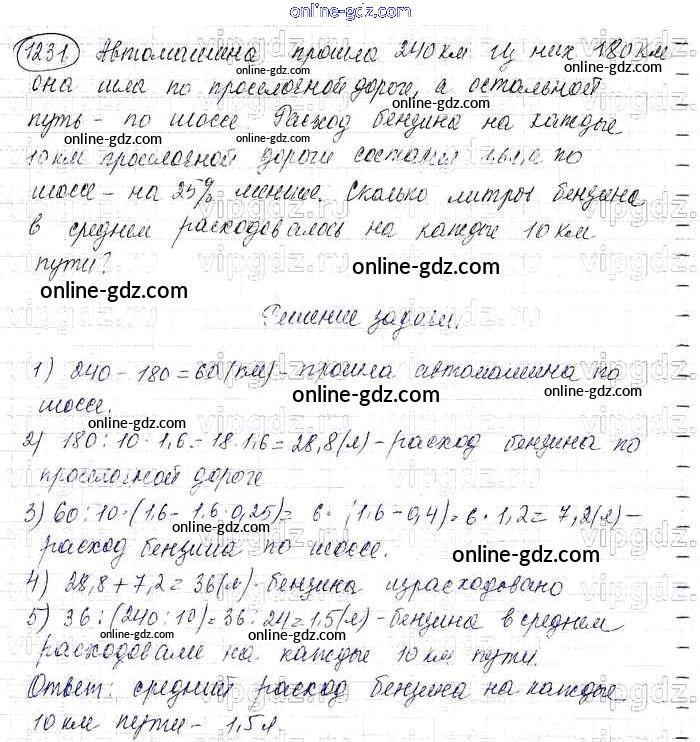 online-gdz.com
1231 Автомашина прошла 240 км из них 180 км
она шла по проселочной дороге, а остальной
путь - по шоссе. Расход бензина на каждые
online-gdz.com online-gdz.com
10 км проселочной дороги составил 1,6 л, а по
шоссе - на 25% меньше. Сколько литров бензина
online-gdz.com
в среднем расходовалось на каждые 10 км
пути?
online-gdz.com online-gdz.com
Решение задачи.
1) 240 - 180 = 60 (км) - прошла автомашина по
шоссе.
online-gdz.com online-gdz.com
2) 180 : 10 · 1,6 = 18 · 1,6 = 28,8 (л) - расход бензина по
проселочной дороге
online-gdz.com
3) 60 : 10 · (1,6 - 1,6 · 0,25) = 6 · (1,6 - 0,4) = 6 · 1,2 = 7,2 (л) -
расход бензина по шоссе.
online-gdz.com online-gdz.com
4) 28,8 + 7,2 = 36 (л) - бензина израсходовано
online-gdz.com
5) 36 : (240 : 10) = 36 : 24 = 1,5 (л) - бензина в среднем
расходовали на каждые 10 км пути.
online-gdz.com
Ответ: средний расход бензина на каждые
online-gdz.com online-gdz.com
10 км пути - 1,5 л.